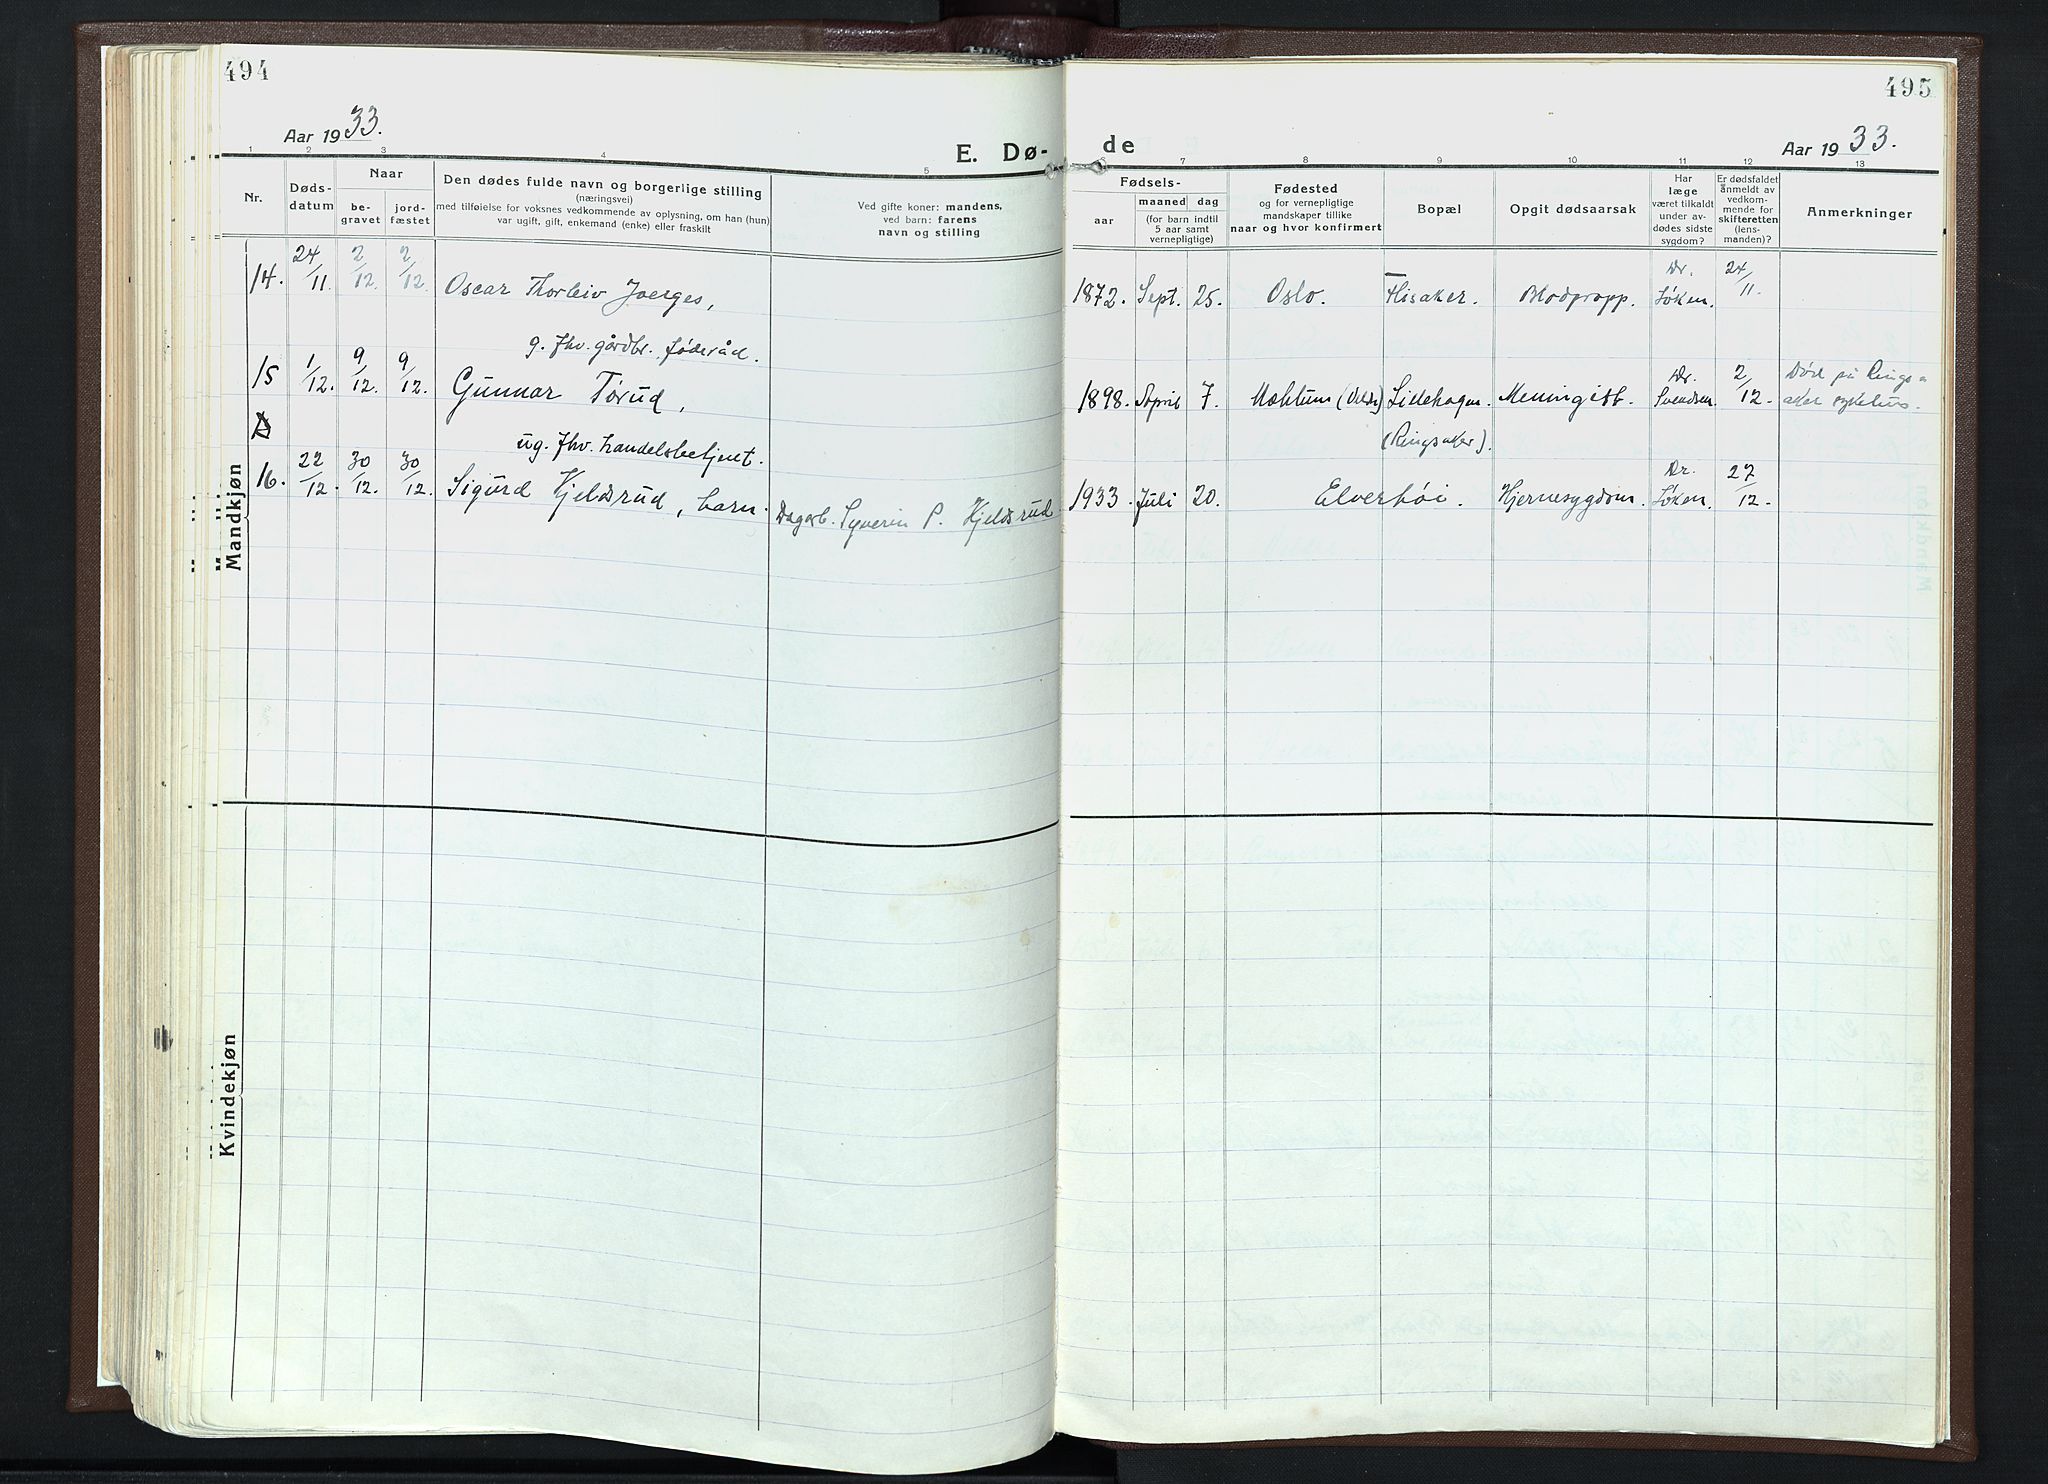 494
Aar 1933.
E. Dø-
1 2 3 4 5
Nr.
Døds-
datum
Naar
be-
gravet
jord-
fæstet
Den dødes fulde navn og borgerlige stilling
(næringsvei)
med tilføielse for voksnes vedkommende av oplysning, om han (hun)
var ugift, gift, enkemand (enke) eller fraskilt
Ved gifte koner: mandens,
ved barn: farens
navn og stilling
14. 24/11. 2/12. 2/12. Oscar Thorleiv Joerges,
g. fhv. gårdbr. føderåd.
15 1/12. 9/12. 9/12. Gunnar Tørud,
ug. fhv. handelsbetjent.
16. 22/12. 30/12. 30/12. Sigurd Kjeldsrud, barn. Dagarb. Syverin P. Kjeldsrud
Mandkjøn
Kvindekjøn
495
de
Aar 1933.
7 8 9 10 11 12 13
Fødsels-
aar
maaned dag
(for barn indtil
5 aar samt
vernepligtige)
Fødested
og for vernepligtige
mandskaper tillike
naar og hvor konfirmert
Bopæl
Opgit dødsaarsak
Har
læge
været tilkaldt
under av-
dødes sidste
sygdom?
Er dødsfaldet
anmeldt av
vedkom-
mende for
skifteretten
(lens-
manden)?
Anmerkninger
1872. Sept. 25. Oslo. Flisaker. Blodpropp. Dr. Løken. 24/11.
1898. April 7. Mæhlum (Velds) Lillehagen. Meningitt. Dr. Svendsen. 2/12. Død på Rings-
aker sykehus.
(Ringsaker).
1933. Juli 20. Elverhøi. Hjernesygdom. Dr. Løken. 27/12.